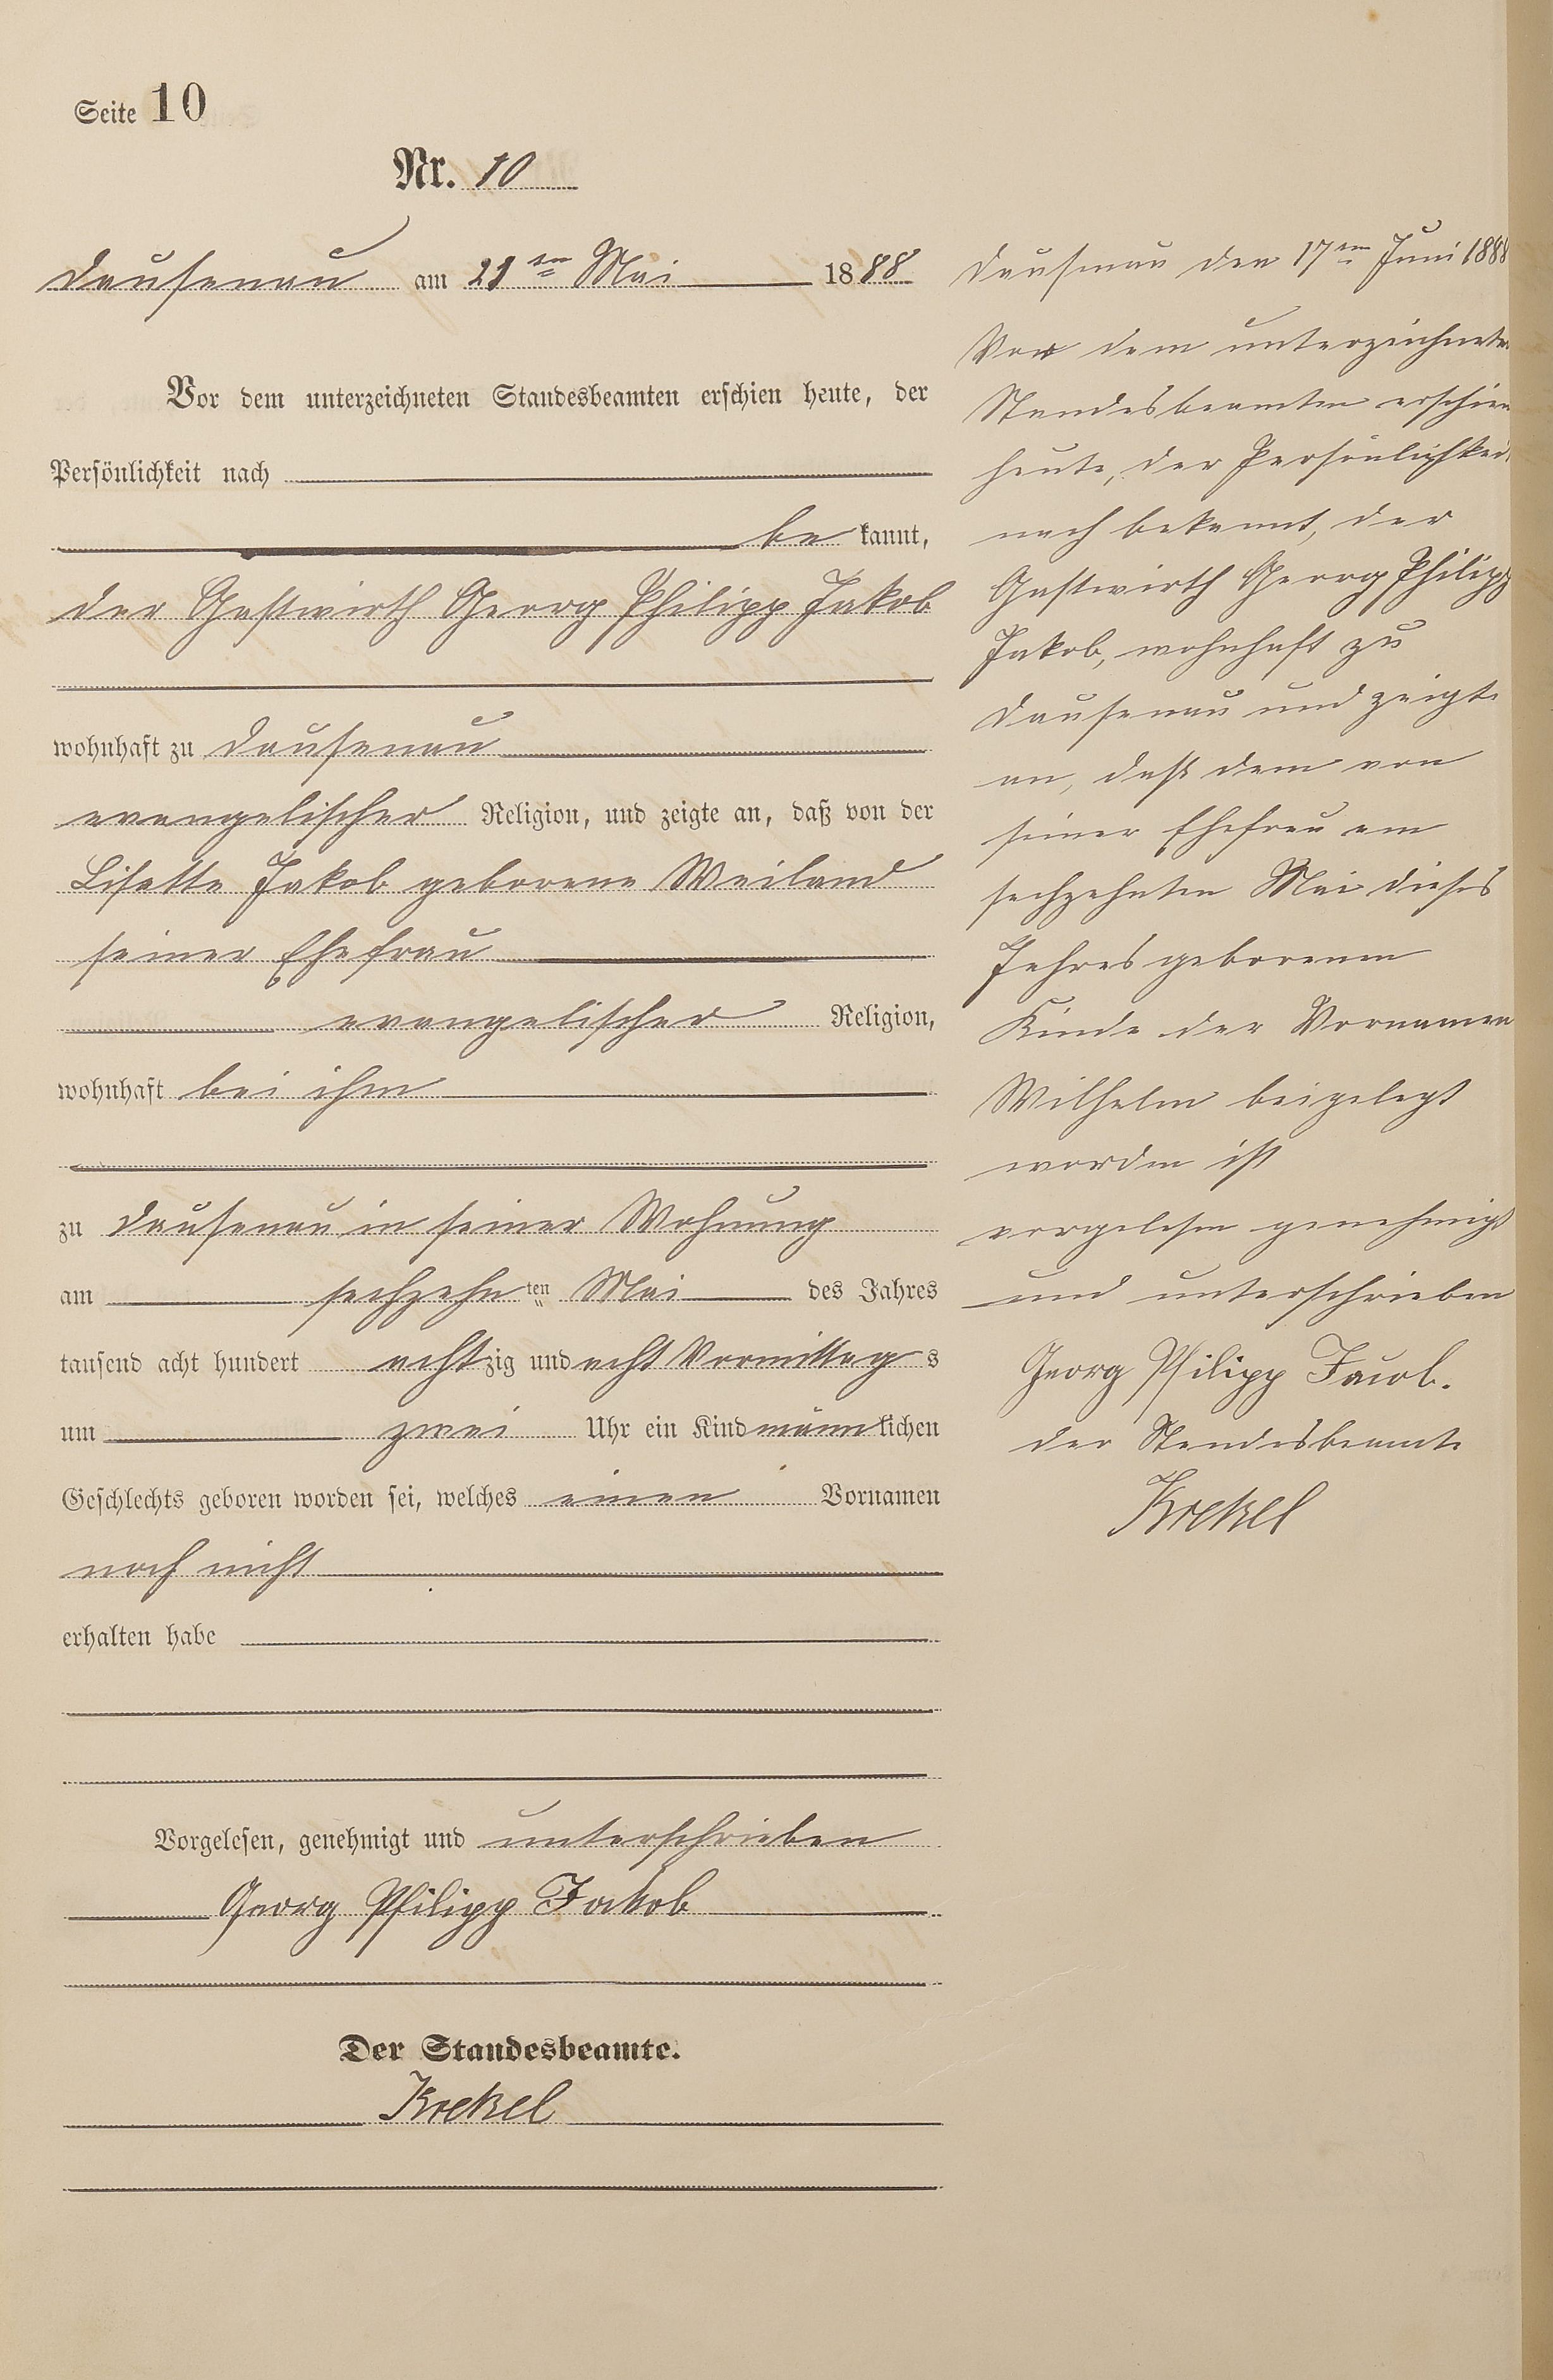 Seite 10
Nr. 10
Dausenau am 21ten Mai 1888
Vor dem unterzeichneten Standesbeamten erschien heute, der
Persönlichkeit nach
bekannt,
der Gastwirth Georg Philipp Jakob
wohnhaft zu Dausenau
evangelischer Religion, und zeigte an, daß von der
Lisette Jakob geborene Weiland
seiner Ehefrau
evangelischer Religion,
wohnhaft bei ihm
zu Dausenau in seiner Wohnung
am sechzehnten Mai des Jahres
tausend acht hundert achtzig und acht Vormittags
um zwei Uhr ein Kind männlichen
Geschlechts geboren worden sei, welches einen Vornamen
noch nicht
erhalten habe
Vorgelesen, genehmigt und unterschrieben
Georg Philipp Jakob
Der Standesbeamte.
Krekel
Dausenau den 17ten Juni 1888
Vor dem unterzeichneten
Standesbeamten erschien
heute, der Persönlichkeit
nach bekannt, der
Gastwirth Georg Philipp
Jakob, wohnhaft zu
Dausenau und zeigte
an, daß dem von
seiner Ehefrau am
sechzehnten Mai dieses
Jahres geborenen
Kinde der Vornamen
Wilhelm beigelegt
worden ist
vorgelesen genehmigt
und unterschrieben
Georg Philipp Jacob.
der Standesbeamte
Krekel